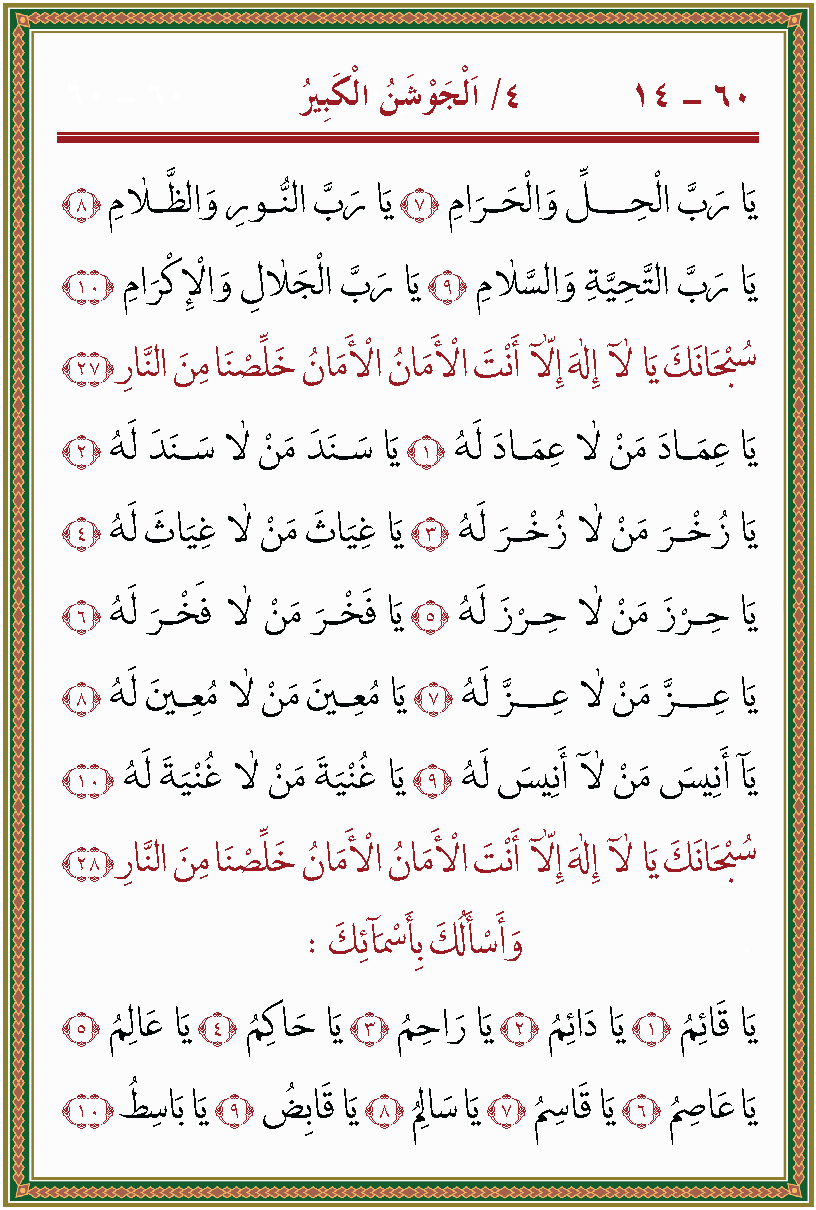 ٦٠ – ١٤ ٤/ اَلْجَوْشَنُ الْكَبِيرُ
يَا رَبَّ الْحِـــلِّ وَالْحَـرَامِ ﴿٧﴾ يَا رَبَّ النُّـورِ وَالظَّـلَامِ ﴿٨﴾
يَا رَبَّ التَّحِيَّةِ وَالسَّلَامِ ﴿٩﴾ يَا رَبَّ الْجَلَالِ وَالْإِكْرَامِ ﴿١٠﴾
سُبْحَانَكَ يَا لَآ إِلٰهَ إِلَّآ أَنْتَ الْأَمَانُ الْأَمَانُ خَلِّصْنَا مِنَ النَّارِ ﴿٢٧﴾
يَا عِمَـادَ مَنْ لَا عِمَـادَ لَهُ ﴿١﴾ يَا سَـنَدَ مَنْ لَا سَـنَدَ لَهُ ﴿٢﴾
يَا زُخْـرَ مَنْ لَا زُخْـرَ لَهُ ﴿٣﴾ يَا غِيَاثَ مَنْ لَا غِيَاثَ لَهُ ﴿٤﴾
يَا حِـرْزَ مَنْ لَا حِـرْزَ لَهُ ﴿٥﴾ يَا فَخْـرَ مَنْ لَا فَخْـرَ لَهُ ﴿٦﴾
يَا عِـــزَّ مَنْ لَا عِـــزَّ لَهُ ﴿٧﴾ يَا مُعِـينَ مَنْ لَا مُعِـينَ لَهُ ﴿٨﴾
يَآ أَنِيسَ مَنْ لَآ أَنِيسَ لَهُ ﴿٩﴾ يَا غُنْيَةَ مَنْ لَا غُنْيَةَ لَهُ ﴿١٠﴾
سُبْحَانَكَ يَا لَآ إِلٰهَ إِلَّآ أَنْتَ الْأَمَانُ الْأَمَانُ خَلِّصْنَا مِنَ النَّارِ ﴿٢٨﴾
وَأَسْأَلُكَ بِأَسْمَآئِكَ :
يَا قَائِمُ ﴿١﴾ يَا دَائِمُ ﴿٢﴾ يَا رَاحِمُ ﴿٣﴾ يَا حَاكِمُ ﴿٤﴾ يَا عَالِمُ ﴿٥﴾
يَا عَاصِمُ ﴿٦﴾ يَا قَاسِمُ ﴿٧﴾ يَا سَالِمُ ﴿٨﴾ يَا قَابِضُ ﴿٩﴾ يَا بَاسِطُ ﴿١٠﴾